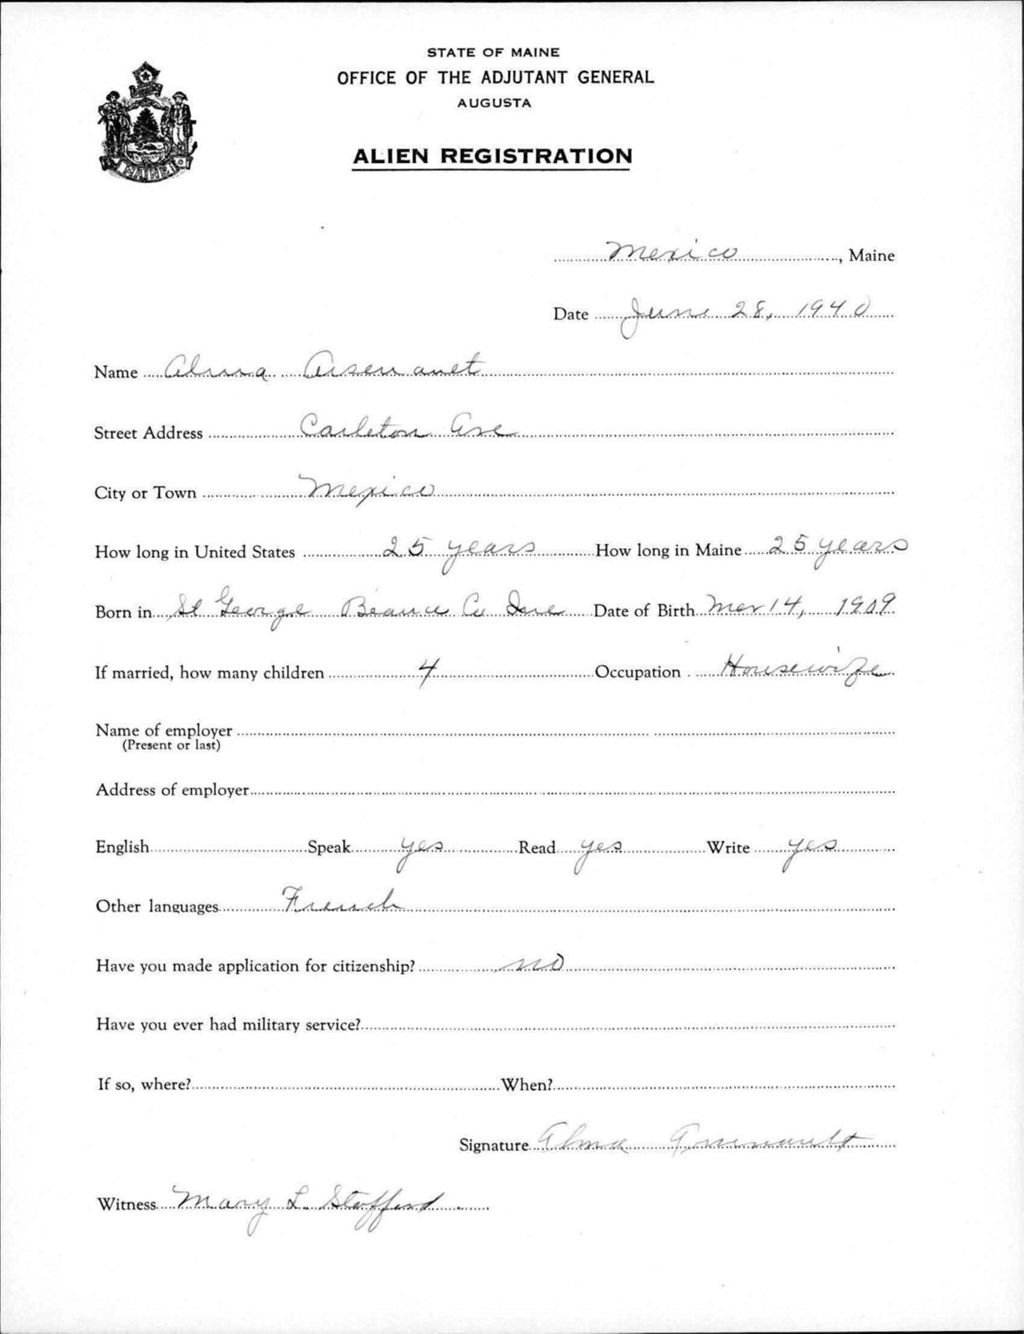 STATE OF MAINE
OFFICE OF THE ADJUTANT GENERAL
AUGUSTA
ALIEN REGISTRATION
MAINE
Mexico, Maine
Date June 28, 1940
Name Alma Arsenault
Street Address Carleton Ave
City or Town Mexico
How long in United States 25 years How long in Maine 25 years
Born in St George Beauce Co Date of Birth Mar 14, 1909
If married, how many children 4 Occupation Housewife
Name of employer
(Present or last)
Address of employer
English Speak yes Read yes Write yes
Other languages French
Have you made application for citizenship? no
Have you ever had military service?
If so, where? When?
Signature Alma Arsenault
Witness Mary L. Stafford